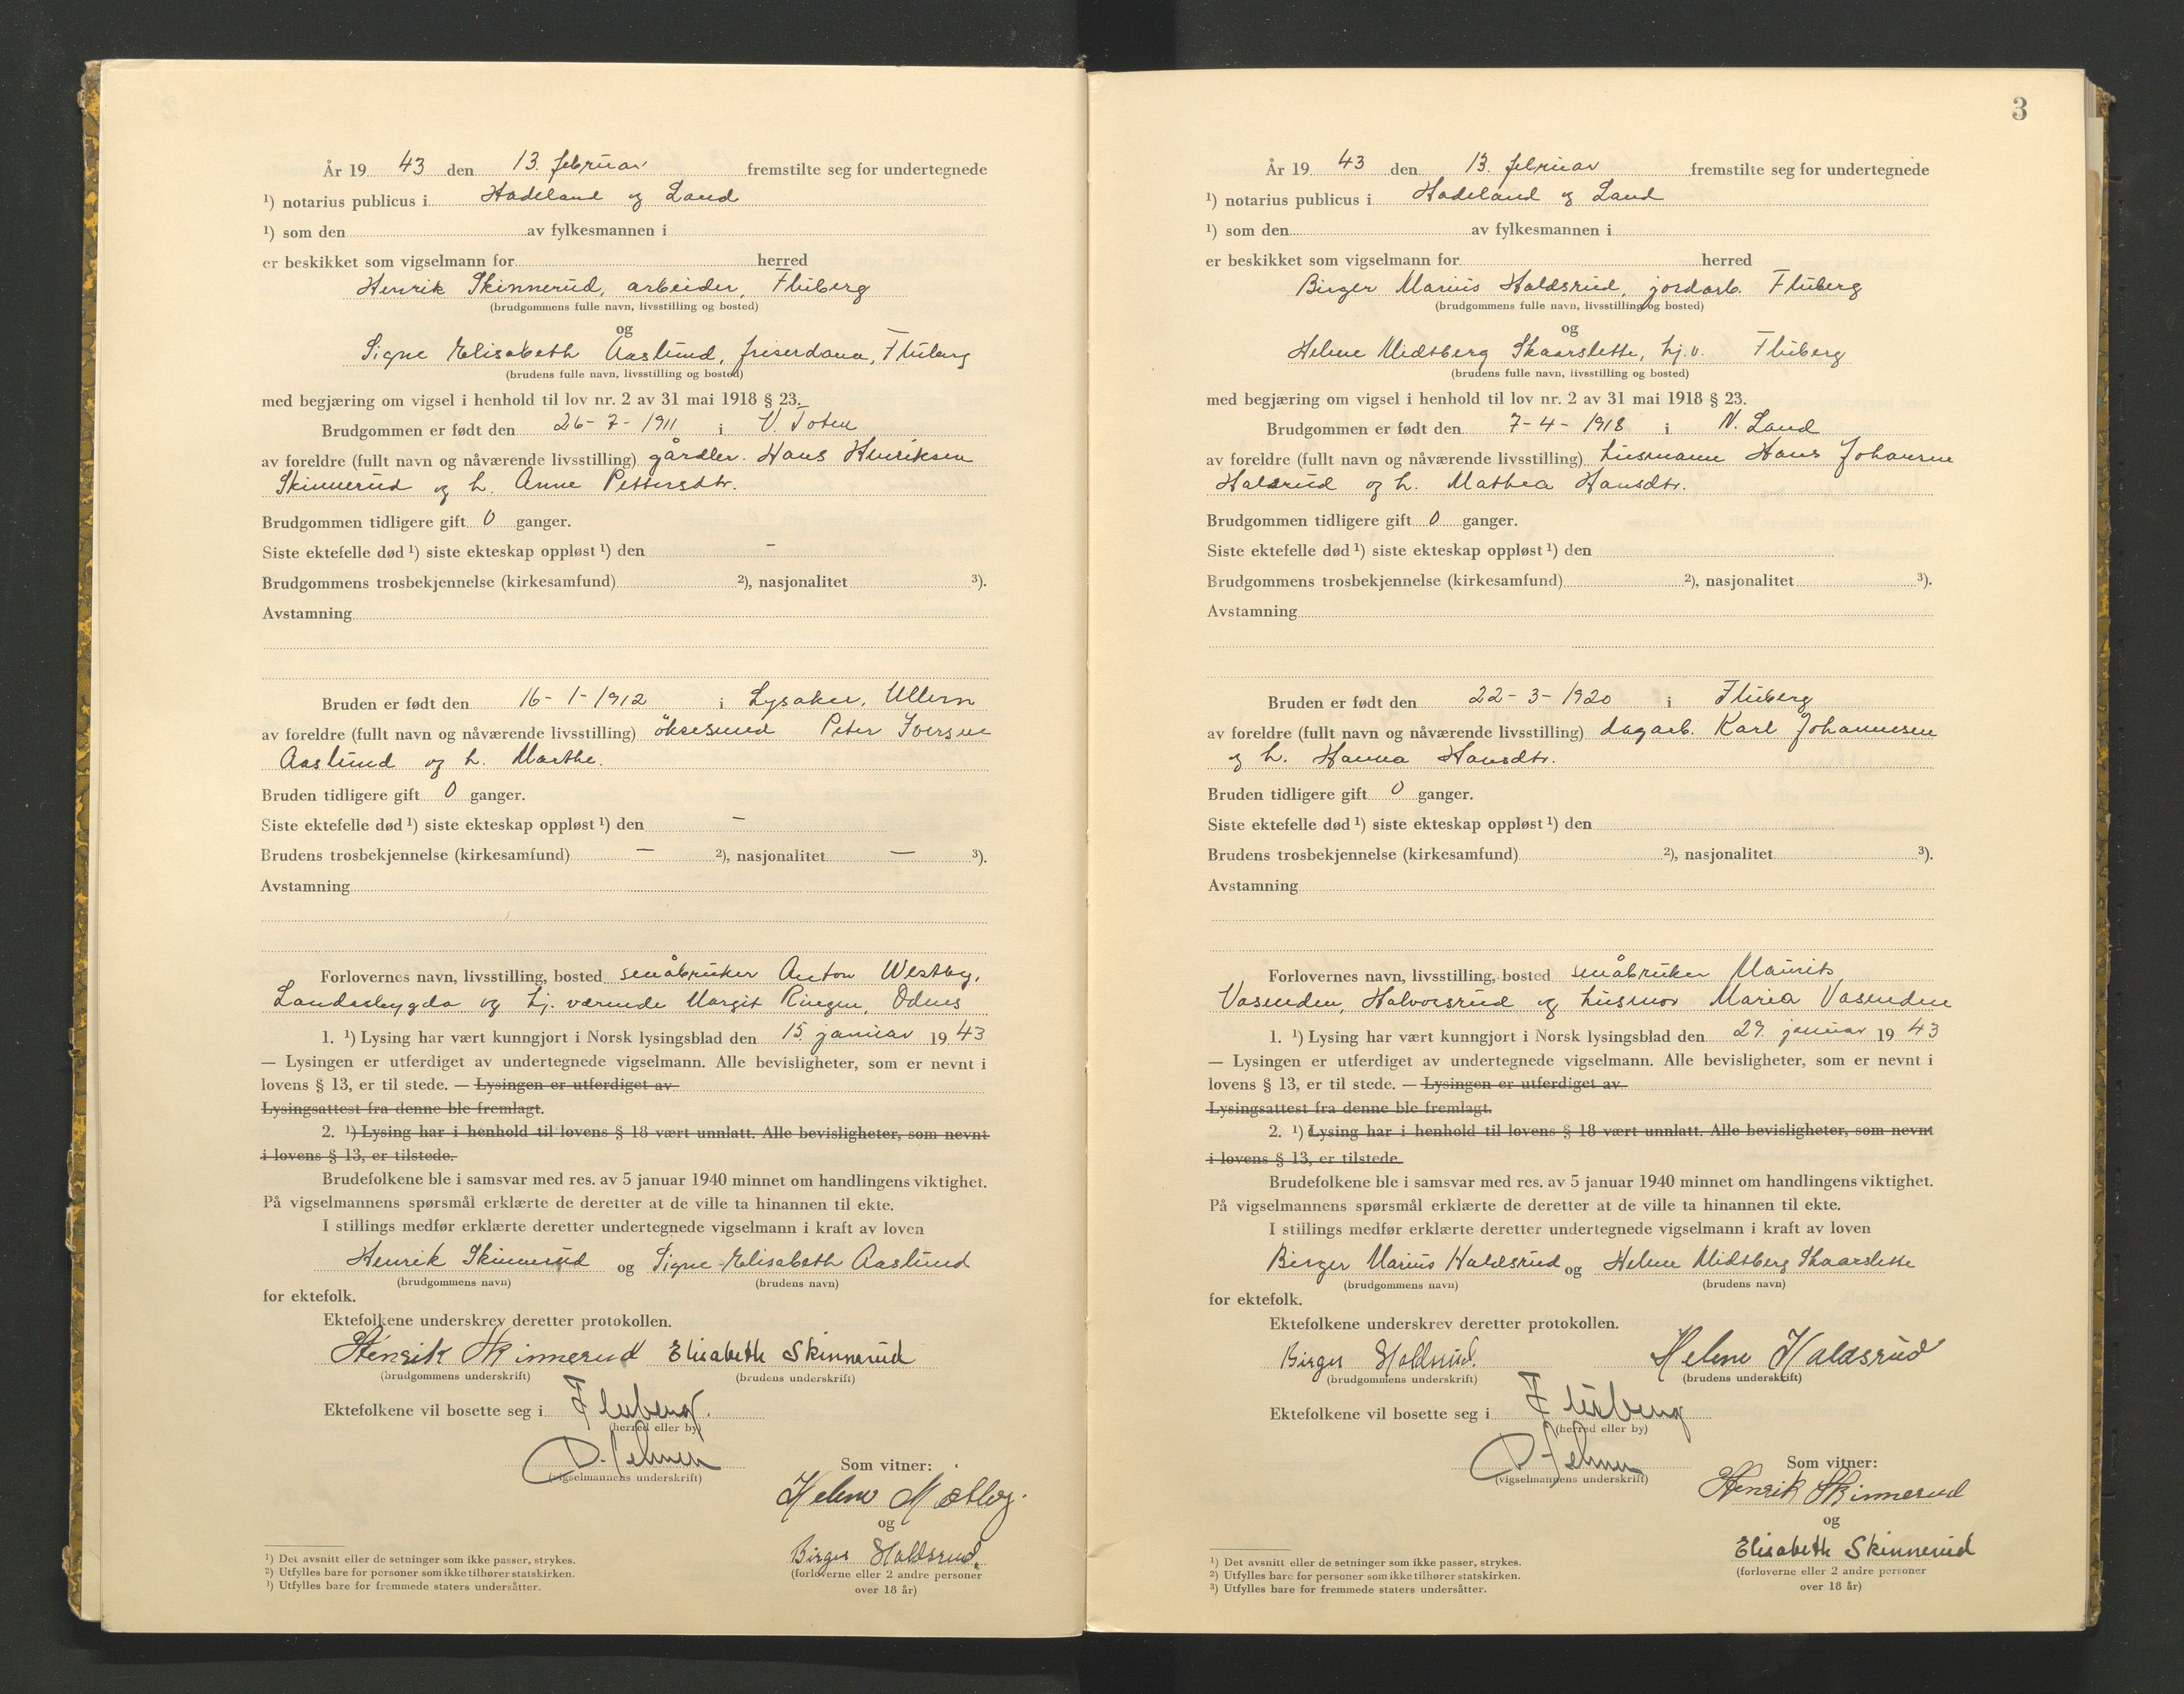 År 19 43 den 13. februar fremstilte seg for undertegnede
¹) notarius publicus i Hadeland og Land
¹) som den av fylkesmannen i
er beskikket som vigselmann for herred
Henrik Skinnerud, arbeider, Fluberg
(brudgommens fulle navn, livsstilling og bosted)
og
Signe Elisabeth Aaslund, friserdame, Fluberg
(brudens fulle navn, livsstilling og bosted)
med begjæring om vigsel i henhold til lov nr. 2 av 31 mai 1918 § 23.
Brudgommen er født den 26-7-1911 i V. Toten
av foreldre (fullt navn og nåværende livsstilling) gårdbr. Hans Henriksen
Skinnerud og h. Anne Pettersdtr.
Brudgommen tidligere gift 0 ganger.
Siste ektefelle død ¹) siste ekteskap oppløst ¹) den –
Brudgommens trosbekjennelse (kirkesamfund) ²), nasjonalitet ³).
Avstamning
Bruden er født den 16-1-1912 i Lysaker, Ullern
av foreldre (fullt navn og nåværende livsstilling) öksesmed Peter Iversen
Aaslund og h. Marthe.
Bruden tidligere gift 0 ganger.
Siste ektefelle død ¹) siste ekteskap oppløst ¹) den –
Brudens trosbekjennelse (kirkesamfund) – ²), nasjonalitet – ³).
Avstamning
Forlovernes navn, livsstilling, bosted småbruker Anton Westby,
Landåsbygda og hj. værende Margit Ringen, Odnes
1. ¹) Lysing har vært kunngjort i Norsk lysingsblad den 15. januar 19 43
— Lysingen er utferdiget av undertegnede vigselmann. Alle bevisligheter, som er nevnt i
lovens § 13, er til stede. — Lysingen er utferdiget av
Lysingsattest fra denne ble fremlagt.
2. ¹) Lysing har i henhold til lovens § 18 vært unnlatt. Alle bevisligheter, som nevnt
i lovens § 13, er tilstede.
Brudefolkene ble i samsvar med res. av 5 januar 1940 minnet om handlingens viktighet.
På vigselmannens spørsmål erklærte de deretter at de ville ta hinannen til ekte.
I stillings medfør erklærte deretter undertegnede vigselmann i kraft av loven
Henrik Skinnerud og Signe Elisabeth Aaslund
(brudgommens navn) (brudens navn)
for ektefolk.
Ektefolkene underskrev deretter protokollen.
Henrik Skinnerud Elisabeth Skinnerud
(brudgommens underskrift) (brudens underskrift)
Ektefolkene vil bosette seg i Fluberg.
(herred eller by)
(vigselmannens underskrift)
Som vitner:
Helene
og
Birger Haldsrud.
(forloverne eller 2 andre personer
over 18 år)
¹) Det avsnitt eller de setninger som ikke passer, strykes.
²) Utfylles bare for personer som ikke tilhører statskirken.
³) Utfylles bare for fremmede staters undersåtter.
3
År 19 43 den 13. februar fremstilte seg for undertegnede
¹) notarius publicus i Hadeland og Land
¹) som den av fylkesmannen i
er beskikket som vigselmann for herred
Birger Marius Haldsrud, jordarb. Fluberg
(brudgommens fulle navn, livsstilling og bosted)
og
Helene Midtberg Skaarslette, hj.v. Fluberg
(brudens fulle navn, livsstilling og bosted)
med begjæring om vigsel i henhold til lov nr. 2 av 31 mai 1918 § 23.
Brudgommen er født den 7-4-1918 i N. Land
av foreldre (fullt navn og nåværende livsstilling) husmann Hans Johansen
Halsrud og h. Mathea Hansdtr.
Brudgommen tidligere gift 0 ganger.
Siste ektefelle død ¹) siste ekteskap oppløst ¹) den
Brudgommens trosbekjennelse (kirkesamfund) ²), nasjonalitet ³).
Avstamning
Bruden er født den 22-3-1920 i Fluberg
av foreldre (fullt navn og nåværende livsstilling) dagarb. Karl Johannesen
og h. Hanna Hansdtr.
Bruden tidligere gift 0 ganger.
Siste ektefelle død ¹) siste ekteskap oppløst ¹) den
Brudens trosbekjennelse (kirkesamfund) ²), nasjonalitet ³).
Avstamning
Forlovernes navn, livsstilling, bosted småbruker Maurits
Vasenden, Halvorsrud og husmor Maria Vasenden
1. ¹) Lysing har vært kunngjort i Norsk lysingsblad den 29. januar 19 43
— Lysingen er utferdiget av undertegnede vigselmann. Alle bevisligheter, som er nevnt i
lovens § 13, er til stede. — Lysingen er utferdiget av
Lysingsattest fra denne ble fremlagt.
2. ¹) Lysing har i henhold til lovens § 18 vært unnlatt. Alle bevisligheter, som nevnt
i lovens § 13, er tilstede.
Brudefolkene ble i samsvar med res. av 5 januar 1940 minnet om handlingens viktighet.
På vigselmannens spørsmål erklærte de deretter at de ville ta hinannen til ekte.
I stillings medfør erklærte deretter undertegnede vigselmann i kraft av loven
Birger Marius Haldsrud og Helene Midtberg Skaarslette
(brudgommens navn) (brudens navn)
for ektefolk.
Ektefolkene underskrev deretter protokollen.
Birger Haldsrud. Helene Haldsrud
(brudgommens underskrift) (brudens underskrift)
Ektefolkene vil bosette seg i Fluberg
(herred eller by)
(vigselmannens underskrift)
Som vitner:
Henrik Skinnerud
og
Elisabeth Skinnerud
(forloverne eller 2 andre personer
over 18 år)
¹) Det avsnitt eller de setninger som ikke passer, strykes.
²) Utfylles bare for personer som ikke tilhører statskirken.
³) Utfylles bare for fremmede staters undersåtter.